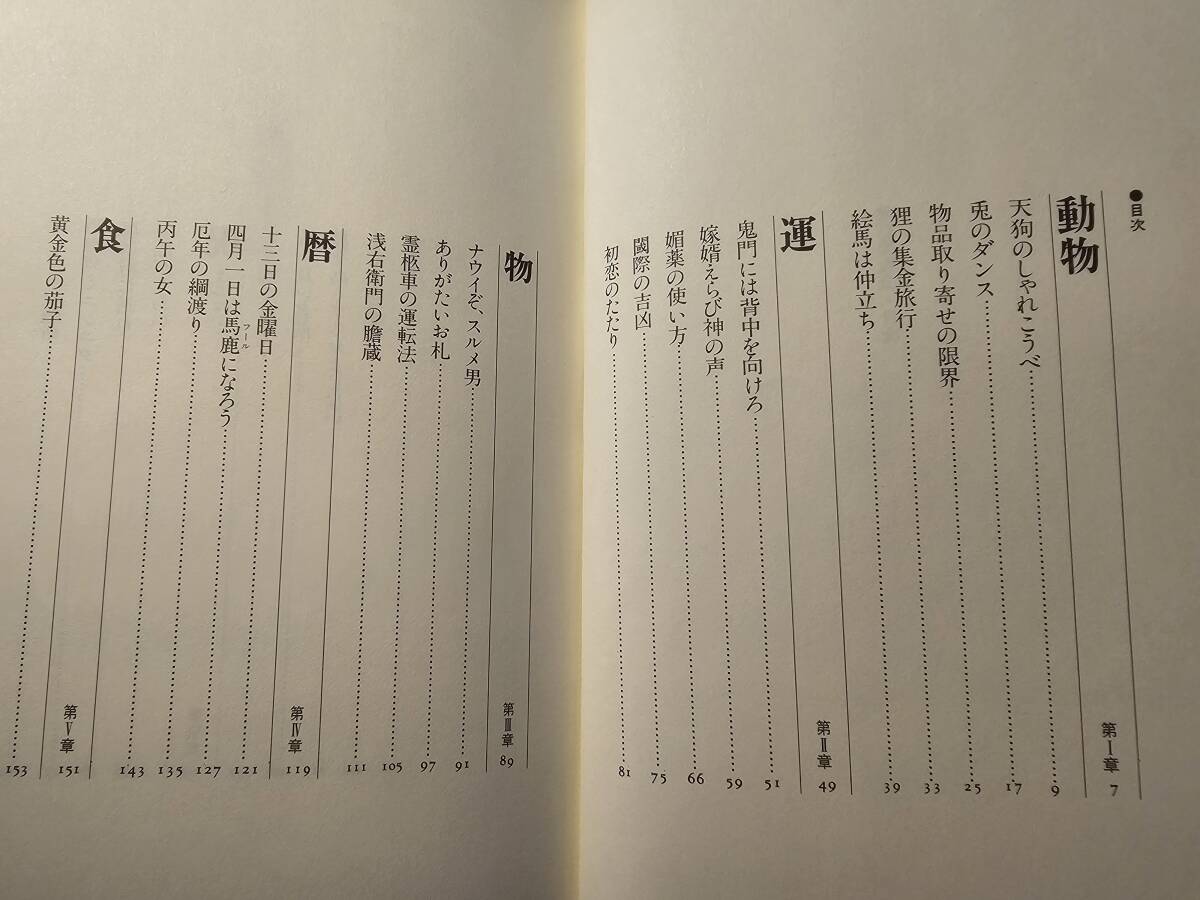 ●目次
動物 第Ⅰ章 7
天狗のしゃれこうべ 9
兎のダンス 17
物品取り寄せの限界 25
狸の集金旅行 33
絵馬は仲立ち 39
運 第Ⅱ章 49
鬼門には背中を向けろ 51
嫁婿えらび神の声 59
媚薬の使い方 66
國際の吉凶 75
初恋のたたり 81
物 第Ⅲ章 89
ナウイぞ、スルメ男 91
ありがたいお札 97
霊柩車の運転法 105
浅右衛門の膽蔵 111
暦 第Ⅳ章 119
十三日の金曜日 121
四月一日は馬鹿になろう 127
フール
厄年の綱渡り 135
丙午の女 143
食 第Ⅴ章 151
黄金色の茄子 153